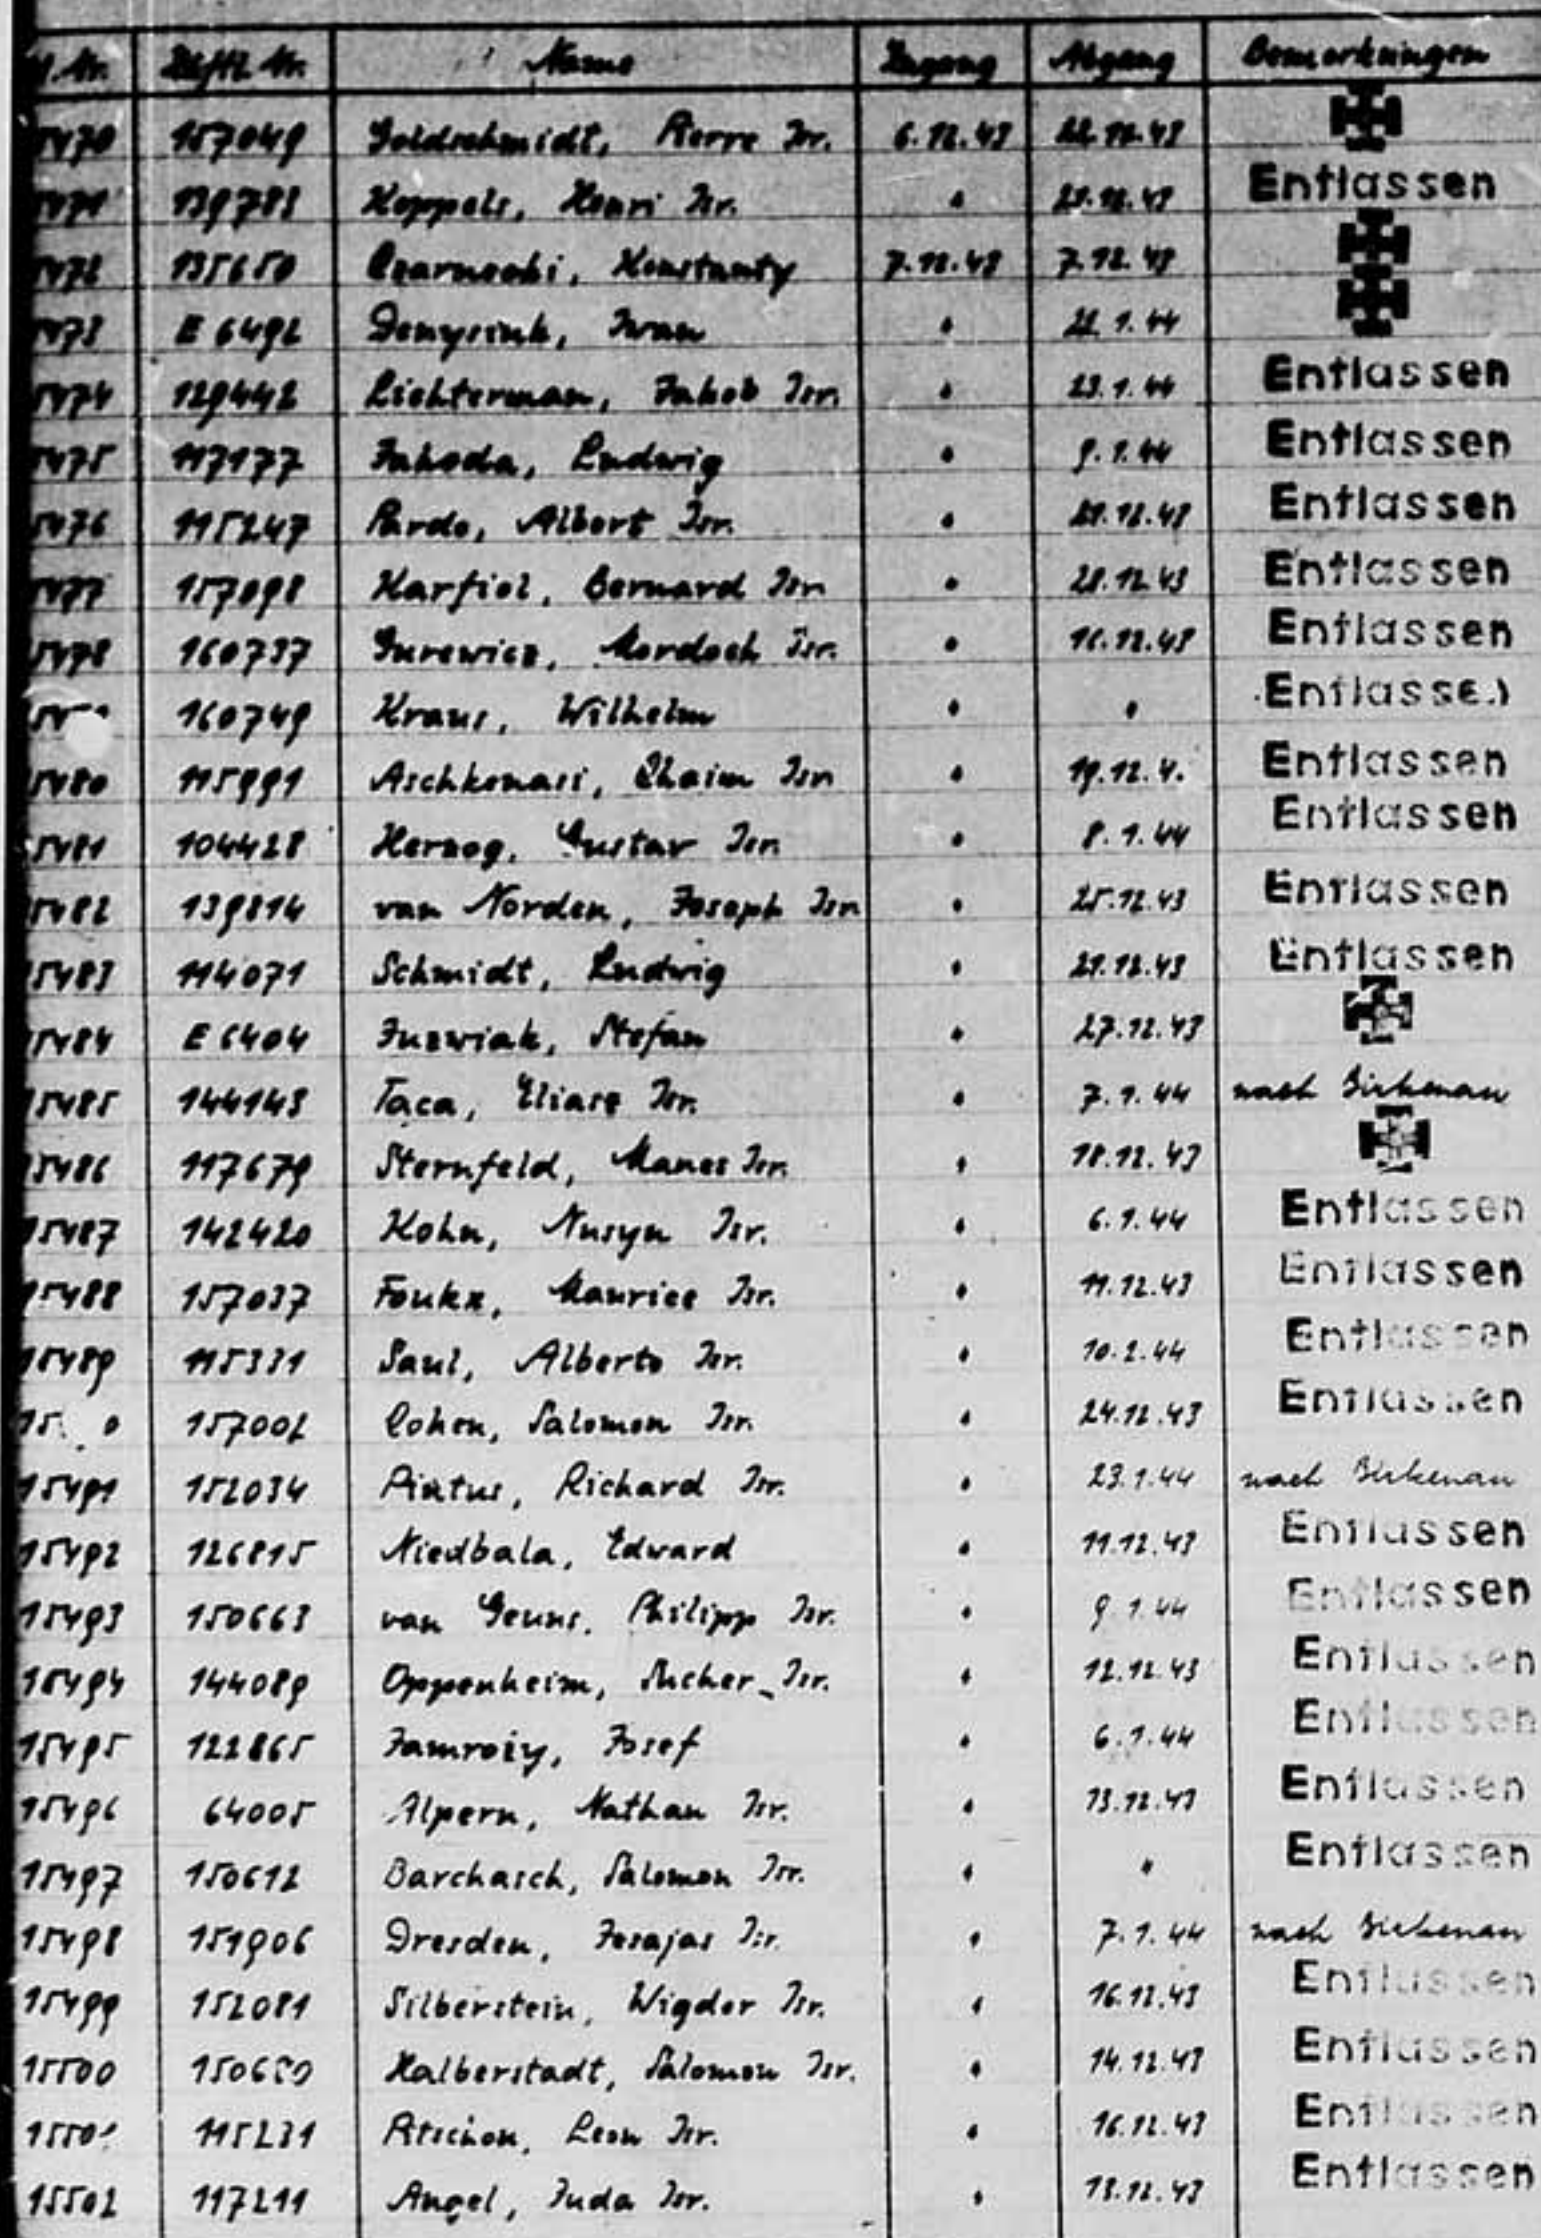 Nr. Häftl. Nr. Name Zugang Abgang Bemerkungen
5470 157049 Goldschmidt, Pierre Isr. 6.12.43 22.12.43
5471 139783 Koppels, Henri Isr. " 28.12.43 Entlassen
5472 135650 Czarnecki, Konstanty 7.12.43 7.12.43
5473 E 6492 Denysiuk, Iwan " 1.44
5474 129442 Lichterman, Jakob Isr. " 23.1.44 Entlassen
5475 117177 Jahoda, Ludwig " 9.1.44 Entlassen
5476 115247 Pardo, Albert Isr. " 12.43 Entlassen
5477 157098 Karfiol, Bernard Isr. " 28.12.43 Entlassen
5478 160737 Gurewicz, Mordoch Isr. " 16.12.43 Entlassen
160749 Kraus, Wilhelm " " Entlassen
5480 115991 Aschkenasi, Chaim Isr. " 19.12.4. Entlassen
5481 104428 Herzog, Gustav Isr. " 8.1.44 Entlassen
5482 139814 van Norden, Joseph Isr. " 25.12.43 Entlassen
15483 114071 Schmidt, Ludwig " 12.43 Entlassen
15484 E 6404 Juzwiak, Stefan " 27.12.43
15485 144143 Taca, Eliase Isr. " 7.1.44 nach Birkenau
15486 117679 Sternfeld, Manes Isr. " 18.12.43
15487 142420 Kohn, Nusyn Isr. " 6.1.44 Entlassen
15488 157037 Foukx, Maurice Isr. " 11.12.43 Entlassen
15489 115331 Saul, Alberto Isr. " 10.2.44 Entlassen
15. 0 157002 Cohen, Salomon Isr. " 24.12.43 Entlassen
15491 152034 Richard Isr. " 23.1.44 nach Birkenau
15492 126815 Niedbala, Edward " 11.12.43 Entlassen
15493 150663 van Geuns, Philipp Isr. " 9.1.44 Entlassen
15494 144089 Oppenheim, Sucher Isr. " 12.12.43 Entlassen
15495 122865 Jamrozy, Josef " 6.1.44 Entlassen
15496 64005 Alpern, Nathan Isr. " 13.12.43 Entlassen
15497 150612 Barchasch, Salomon Isr. " " Entlassen
15498 151906 Dresden, Jesajas Isr. " 7.1.44 nach Birkenau
15499 152081 Silberstein, Wigdor Isr. " 16.12.43 Entlassen
15500 Halberstadt, Salomon Isr. " 14.12.43 Entlassen
15501 115231 Leon Isr. " 16.12.43 Entlassen
15502 117211 Angel, Juda Isr. " 13.12.43 Entlassen